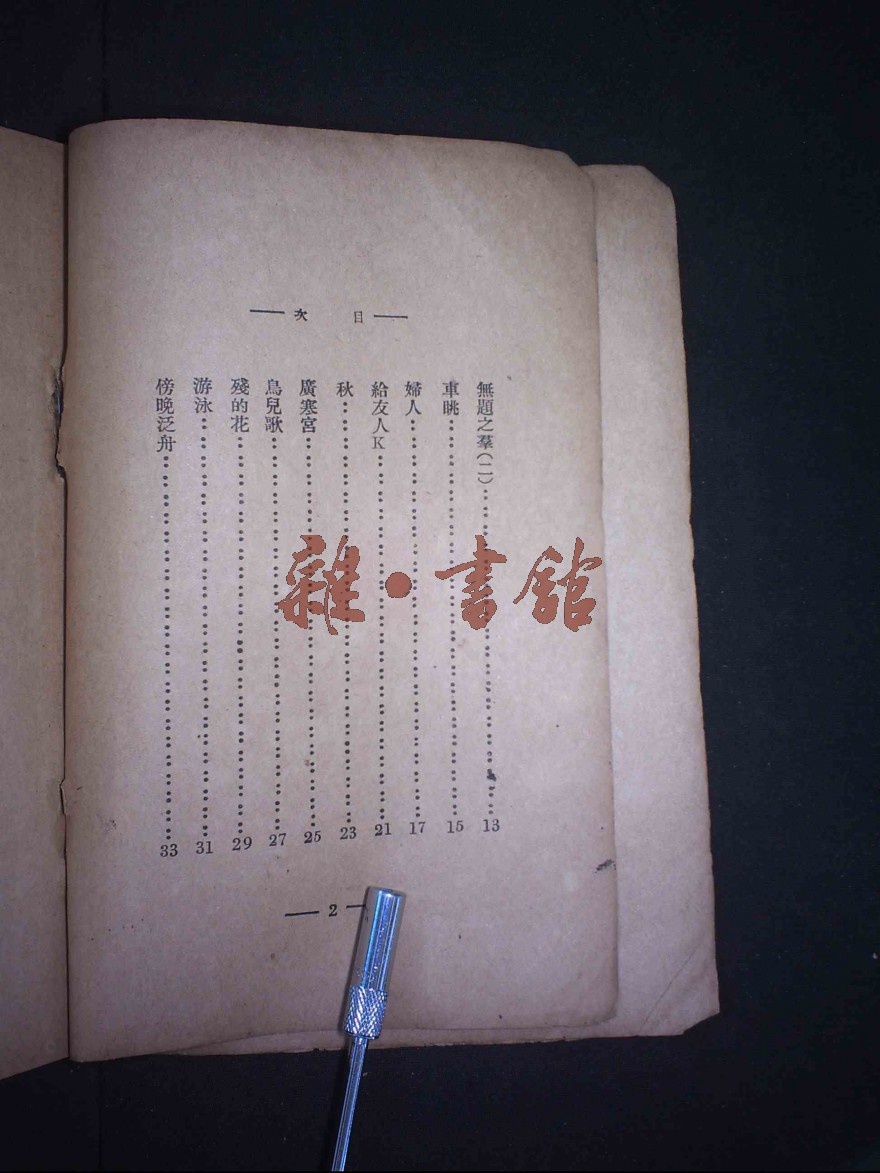 目　次
無題之羣(二)……13
車眺……15
婦人……17
給友人K……21
秋……23
廣寒宮……25
鳥兒歌……27
殘的花……29
游泳……31
傍晚泛舟……33
2
雜・書館